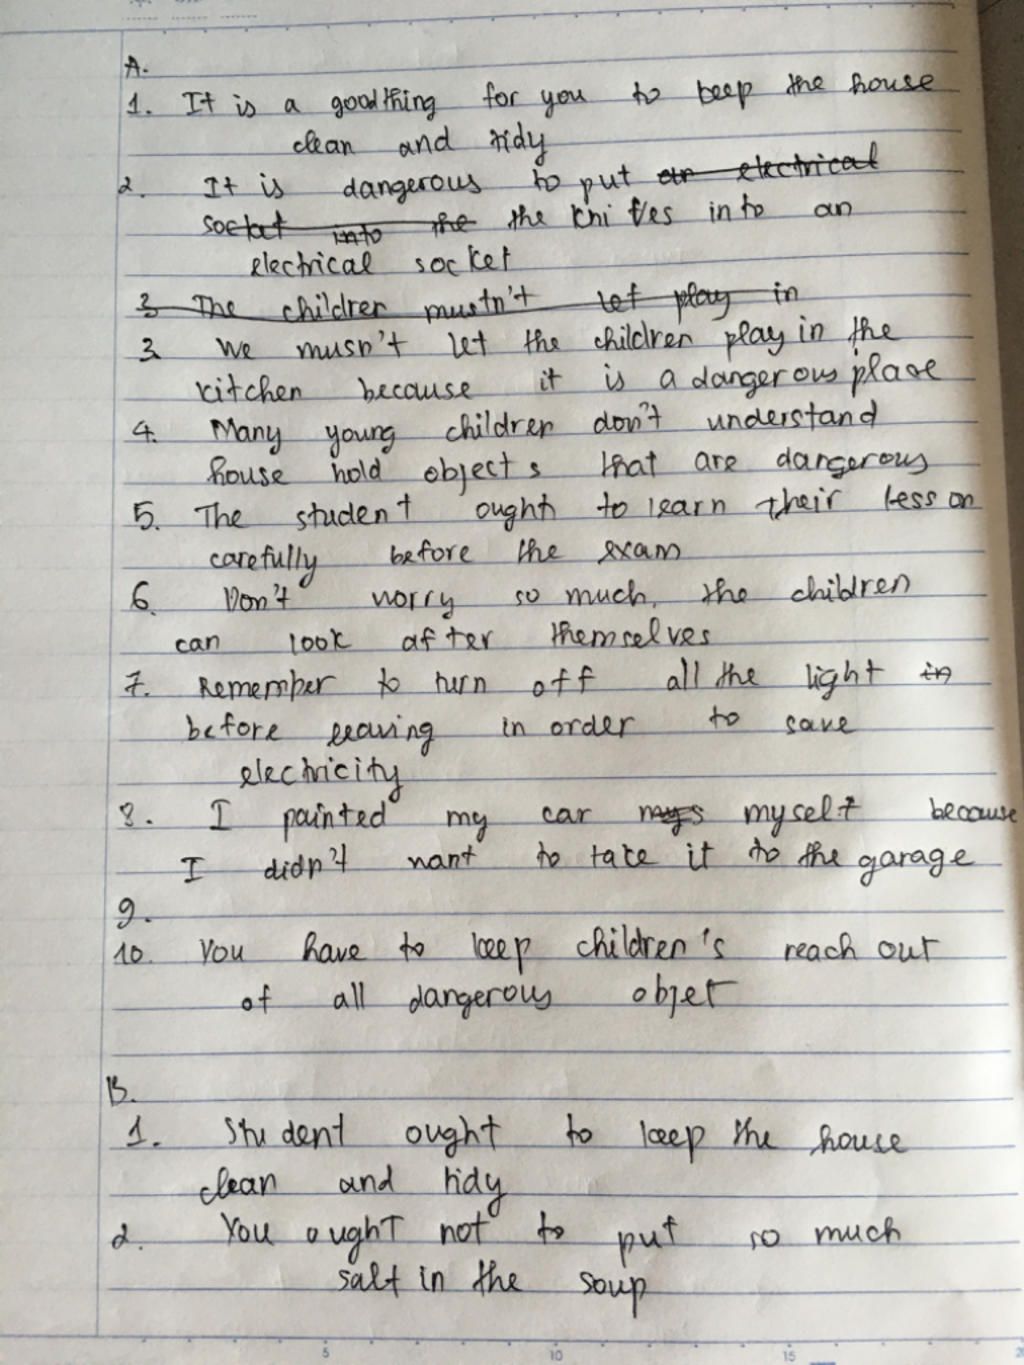 A.
1. It is a good thing for you to keep the house
clean and tidy
2. It is dangerous to put an electrical
socket into the the knives into an
electrical socket
3 The children mustn't let play in
3 We musn't let the children play in the
kitchen because it is a dangerous place
4. Many young children don't understand
house hold objects that are dangerous
5. The student ought to learn their lesson
carefully before the exam
6. Don't worry so much, the children
can look after themselves
7. Remember to turn off all the light in
before leaving in order to save
electricity
8. I painted my car mys myself because
I didn't want to take it to the garage
9.
10. You have to keep children's reach out
of all dangerous objet
B.
1. Student ought to keep the house
clean and tidy
2. You ought not to put so much
salt in the soup
5 10 15 20